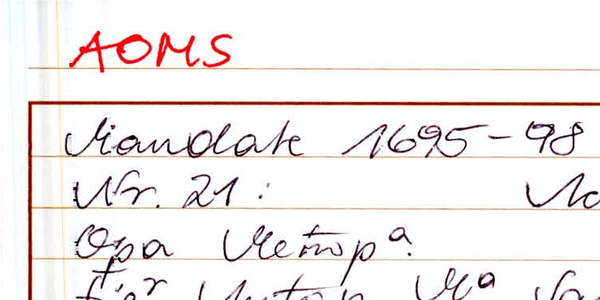 AOMS
Mandate 1695-98
Nr. 21:
Opa Metropª.
für Anton Mª